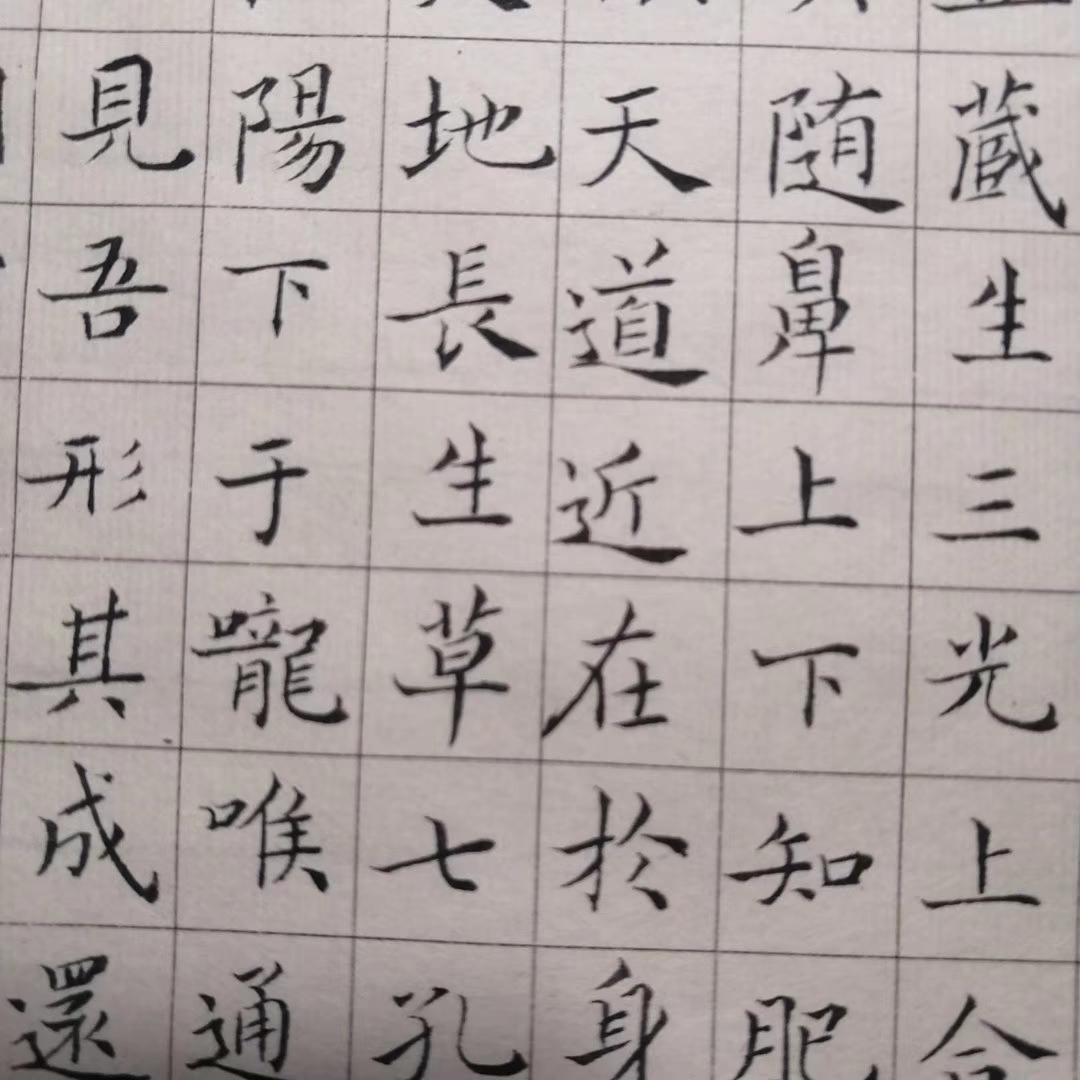 蔵生三光上合
随鼻上下知肥
天道近在於身
地長生草七孔
陽下于嚨喉通
見吾形其成還